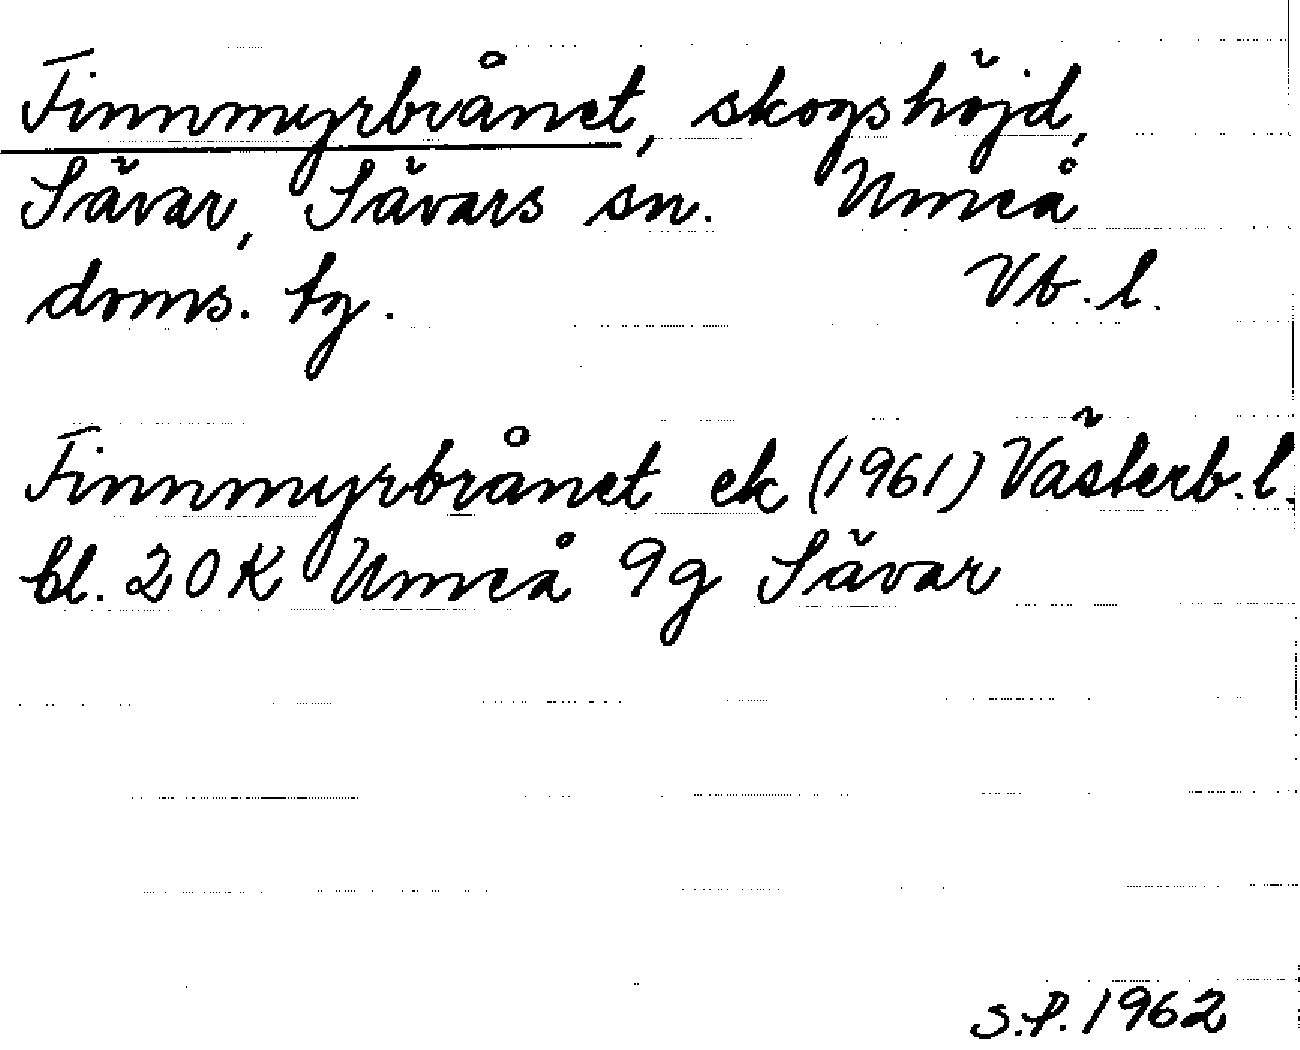 Finnmyrbrånet, skogshöjd,
Sävar, Sävars sn. Umeå
doms. tg. Vb. l.
Finnmyrbrånet ek (1961) Västerb. l.
bl. 20 K Umeå 9g Sävar
S.P. 1962